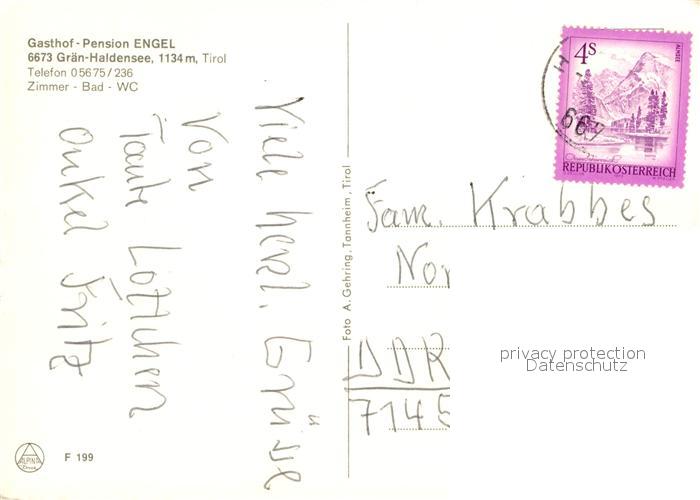 Gasthof - Pension ENGEL
6673 Grän-Haldensee, 1134 m, Tirol
Telefon 05675/236
Zimmer - Bad - WC
Viele herzl. Grüsse
von
Tante Lottchen
Onkel Fritz
Foto A. Gehring, Tannheim, Tirol
4S
ALMSEE
REPUBLIK ÖSTERREICH
667
Fam. Krabbes
Nor
DDR
7145
privacy protection
Datenschutz
ALPINA
F 199